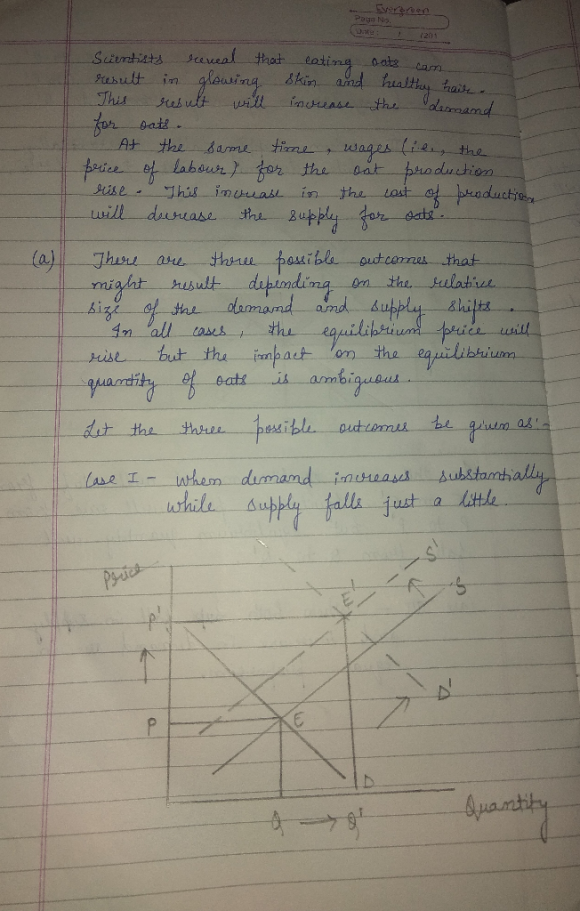 Evergreen
Page No.
Date: / /201
Scientists reveal that eating oats can
result in glowing skin and healthy hair.
This result will increase the demand
for oats.
At the same time, wages (i.e., the
price of labour) for the oat production
rise. This increase in the cost of production
will decrease the supply for oats.
(a) There are three possible outcomes that
might result depending on the relative
size of the demand and supply shifts.
In all cases, the equilibrium price will
rise but the impact on the equilibrium
quantity of oats is ambiguous.
Let the three possible outcomes be given as:-
Case I - when demand increases substantially
while supply falls just a little.
Price
S'
S
E'
P'
D'
P
E
D
Q → Q'
Quantity